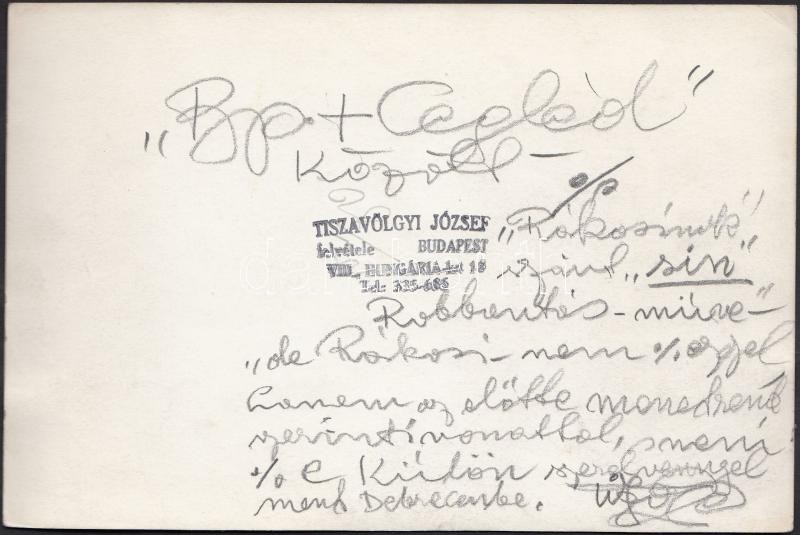 „Bp. + Cegléd”
között —
TISZAVÖLGYI JÓZSEF
felvétele BUDAPEST
VIII., HUNGÁRIA-krt 18
Tel: 335-686
„Rákosinak”
szánt „sín”
Robbantás - műve -
„de Rákosi - nem % azzal
hanem az előtte menetrend
szerinti vonattal, s nem
% e külön szerelvénnyel
ment Debrecenbe.